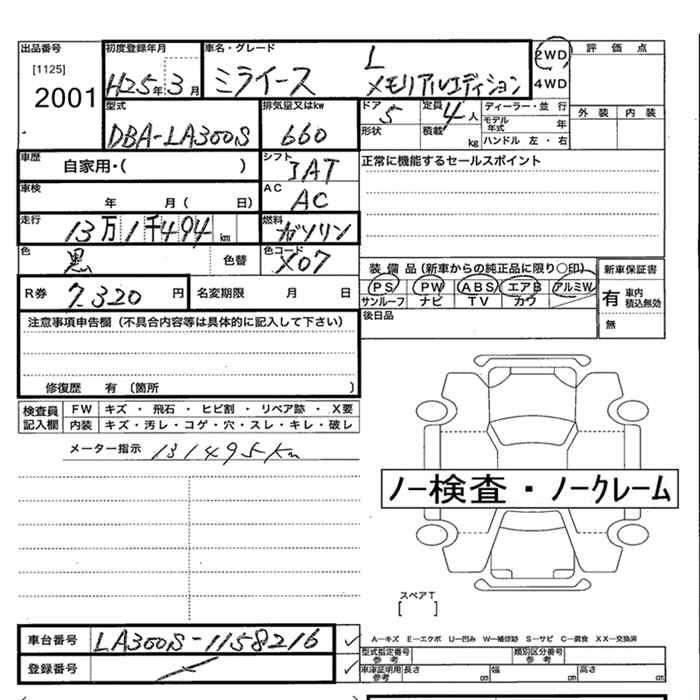 出品番号 [1125] 2001
初度登録年月 H25年3月
車名・グレード ミライース L メモリアルエディション
2WD 4WD
評価点 外装 内装
型式 DBA-LA300S
排気量又はkw 660
ドア 5 定員 4人
形状 積載 kg
ディーラー・並行
モデル年式 年
ハンドル 左・右
車歴 自家用・( )
シフト IAT
正常に機能するセールスポイント
車検 年 月( 日)
AC AC
走行 13万1千494km
燃料 ガソリン
色 黒 色替
色コード X07
装備品(新車からの純正品に限り○印)
PS PW ABS エアB アルミW
サンルーフ ナビ TV カワ
新車保証書
有 車内積込無効
無
R券 7.320円
名変期限 月 日
後日品
注意事項申告欄(不具合内容等は具体的に記入して下さい)
修復歴 有 〔箇所 〕
検査員記入欄
FW キズ・飛石・ヒビ割・リペア跡・X要
内装 キズ・汚レ・コゲ・穴・スレ・キレ・破レ
メーター指示 131495Km
ノー検査・ノークレーム
スペアT
[ ]
車台番号 LA300S-1158216 ✓
登録番号 ✓
A―キズ E―エクボ U―凹み W―補修跡 S―サビ C―腐食 XX―交換済
型式指定番号 参考
類別区分番号 参考
車庫証明用 参考 長さ cm 幅 cm 高さ cm